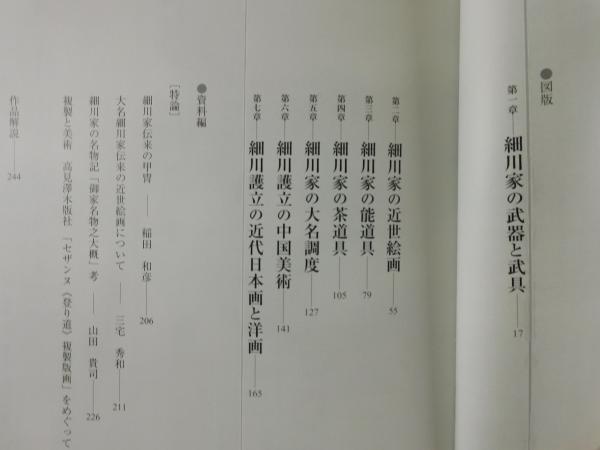 ●図版
第一章──細川家の武器と武具──17
第二章──細川家の近世絵画──55
第三章──細川家の能道具──79
第四章──細川家の茶道具──105
第五章──細川家の大名調度──127
第六章──細川護立の中国美術──141
第七章──細川護立の近代日本画と洋画──165
●資料編
[特論]
細川家伝来の甲冑──稲田 和彦──206
大名細川家伝来の近世絵画について──三宅 秀和──211
細川家の名物記「御家名物之大概」考──山田 貴司──226
複製と美術 高見澤木版社「セザンヌ《登り道》複製版画」をめぐって
作品解説──244